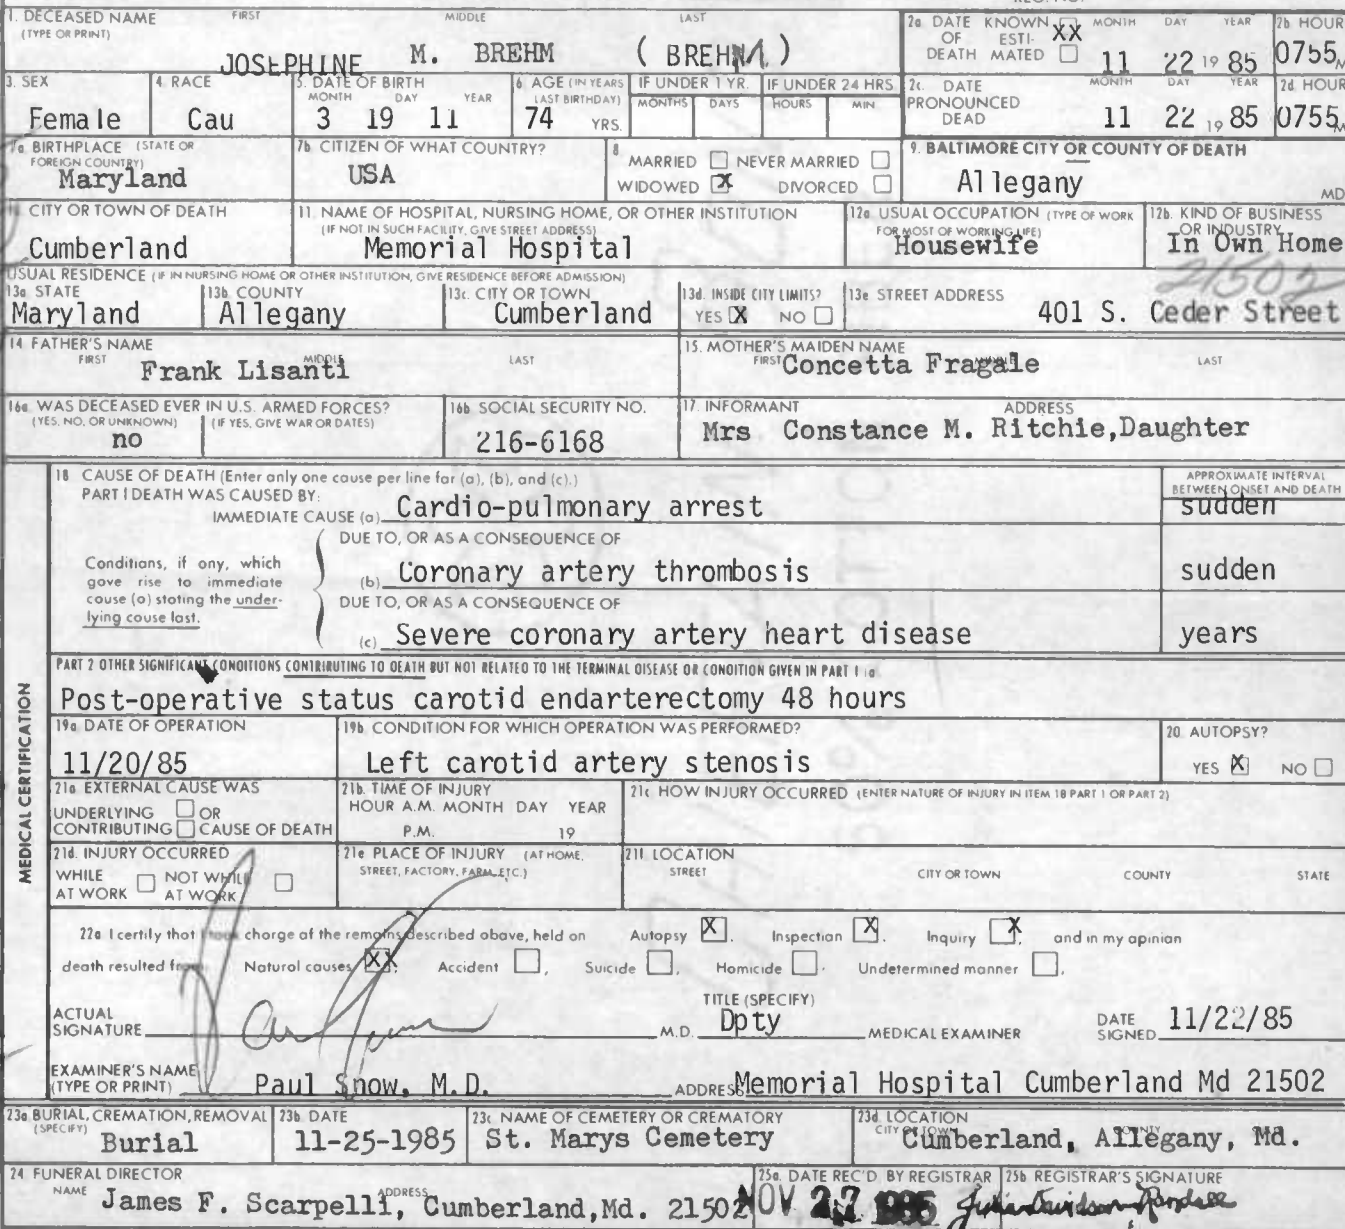 1. DECEASED NAME FIRST MIDDLE LAST
(TYPE OR PRINT)
JOSEPHINE M. BREHM ( BREHM )
2a DATE KNOWN XX MONTH DAY YEAR 2b HOUR
OF ESTI-
DEATH MATED 11 22 19 85 0755 M
3. SEX 4. RACE 5. DATE OF BIRTH 6 AGE (IN YEARS IF UNDER 1 YR. IF UNDER 24 HRS.
MONTH DAY YEAR LAST BIRTHDAY) MONTHS DAYS HOURS MIN.
Female Cau 3 19 11 74 YRS.
2c. DATE MONTH DAY YEAR 2d HOUR
PRONOUNCED
DEAD 11 22 19 85 0755 M
7a BIRTHPLACE (STATE OR
FOREIGN COUNTRY)
Maryland
7b CITIZEN OF WHAT COUNTRY?
USA
8
MARRIED NEVER MARRIED
WIDOWED X DIVORCED
9. BALTIMORE CITY OR COUNTY OF DEATH
Allegany MD
CITY OR TOWN OF DEATH
Cumberland
11. NAME OF HOSPITAL, NURSING HOME, OR OTHER INSTITUTION
(IF NOT IN SUCH FACILITY, GIVE STREET ADDRESS)
Memorial Hospital
12a USUAL OCCUPATION (TYPE OF WORK
FOR MOST OF WORKING LIFE)
Housewife
12b. KIND OF BUSINESS
OR INDUSTRY
In Own Home
21502
USUAL RESIDENCE (IF IN NURSING HOME OR OTHER INSTITUTION, GIVE RESIDENCE BEFORE ADMISSION)
13a STATE 13b. COUNTY 13c. CITY OR TOWN 13d. INSIDE CITY LIMITS? 13e STREET ADDRESS
Maryland Allegany Cumberland YES X NO 401 S. Ceder Street
14 FATHER'S NAME
FIRST MIDDLE LAST
Frank Lisanti
15. MOTHER'S MAIDEN NAME
FIRST LAST
Concetta Fragale
16a WAS DECEASED EVER IN U.S. ARMED FORCES?
(YES, NO, OR UNKNOWN) (IF YES, GIVE WAR OR DATES)
no
16b SOCIAL SECURITY NO.
216-6168
17 INFORMANT ADDRESS
Mrs Constance M. Ritchie,Daughter
MEDICAL CERTIFICATION
18 CAUSE OF DEATH (Enter only one cause per line for (a), (b), and (c).)
PART I DEATH WAS CAUSED BY:
APPROXIMATE INTERVAL
BETWEEN ONSET AND DEATH
IMMEDIATE CAUSE (a) Cardio-pulmonary arrest sudden
DUE TO, OR AS A CONSEQUENCE OF
Conditions, if any, which
gave rise to immediate
cause (a) stating the under-
lying cause last.
(b) Coronary artery thrombosis sudden
DUE TO, OR AS A CONSEQUENCE OF
(c) Severe coronary artery heart disease years
PART 2 OTHER SIGNIFICANT CONDITIONS CONTRIBUTING TO DEATH BUT NOT RELATED TO THE TERMINAL DISEASE OR CONDITION GIVEN IN PART I a
Post-operative status carotid endarterectomy 48 hours
19a DATE OF OPERATION 19b. CONDITION FOR WHICH OPERATION WAS PERFORMED? 20. AUTOPSY?
11/20/85 Left carotid artery stenosis YES X NO
21a EXTERNAL CAUSE WAS
UNDERLYING OR
CONTRIBUTING CAUSE OF DEATH
21b. TIME OF INJURY
HOUR A.M. MONTH DAY YEAR
P.M. 19
21c HOW INJURY OCCURRED (ENTER NATURE OF INJURY IN ITEM 18 PART 1 OR PART 2)
21d. INJURY OCCURRED
WHILE NOT WHILE
AT WORK AT WORK
21e PLACE OF INJURY (AT HOME,
STREET, FACTORY, FARM, ETC.)
21f. LOCATION
STREET CITY OR TOWN COUNTY STATE
22a I certify that I took charge of the remains described above, held on Autopsy X, Inspection X, Inquiry X, and in my opinion
death resulted from Natural causes XX, Accident , Suicide , Homicide , Undetermined manner .
ACTUAL
SIGNATURE M.D.
TITLE (SPECIFY)
Dpty MEDICAL EXAMINER
DATE
SIGNED 11/22/85
EXAMINER'S NAME
(TYPE OR PRINT) Paul Snow, M.D. ADDRESS Memorial Hospital Cumberland Md 21502
23a BURIAL, CREMATION, REMOVAL 23b DATE 23c NAME OF CEMETERY OR CREMATORY 23d. LOCATION
(SPECIFY) CITY OR TOWN COUNTY
Burial 11-25-1985 St. Marys Cemetery Cumberland, Allegany, Md.
24 FUNERAL DIRECTOR
NAME ADDRESS
James F. Scarpelli, Cumberland,Md. 21502
25a. DATE REC'D. BY REGISTRAR
NOV 27 1985
25b REGISTRAR'S SIGNATURE